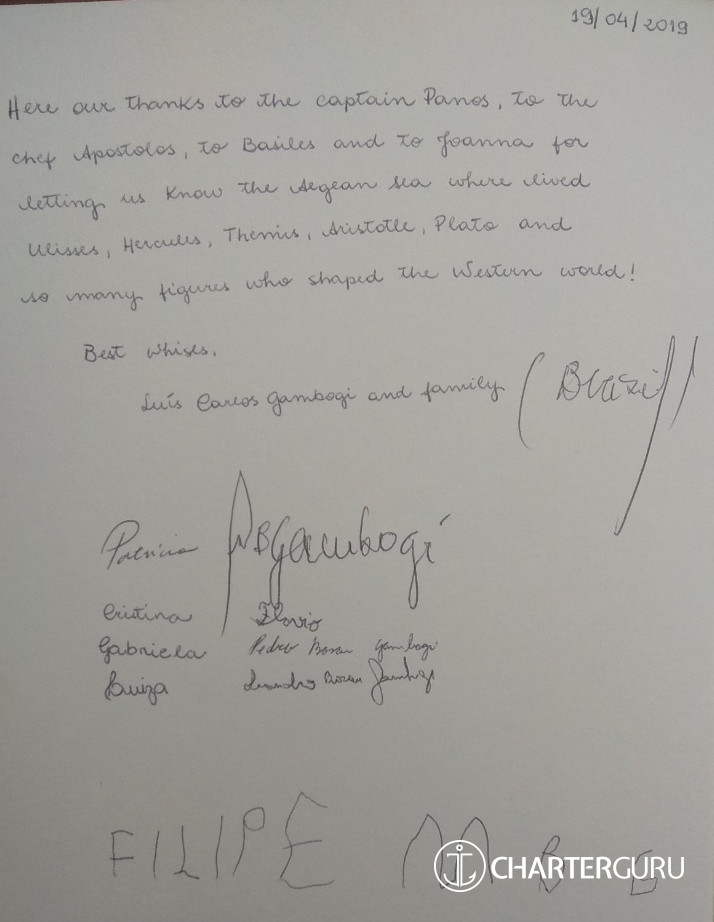 19/04/2019
Here our thanks to the captain Panos, to the
chef Apostolos, to Basiles and to Joanna for
letting us know the Aegean sea where lived
Ulisses, Hercules, Themis, Aristotle, Plato and
so many figures who shaped the Western world!
Best whises,
Luís Carlos Gambogi and family (Brazil)
Patricia Gambogi
Cristina Flavio
Gabriela Pedro Gambogi
Luiza Leandro Gambogi
FILIPE M B G
CHARTERGURU